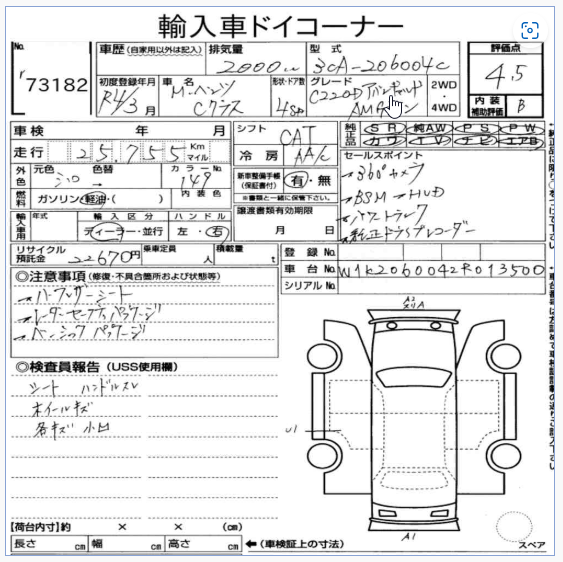 輸入車ドイコーナー
No. 73182
車歴 (自家用以外は記入)
排気量 2000cc
型式 3CA-206004C
評価点 4.5
初度登録年月 R4/3月
車名 M・ベンツ Cクラス
形状・ドア数 4SD
グレード C220D アバンギャルド
AMGライン
2WD・4WD
内装補助評価 B
車検 年 月
走行 25,755 Km マイル
シフト CAT
冷房 AA/C
純正品 SR 純AW PS PW
カワ TV ナビ エアB
外色 元色 シロ 色替 → カラーNo. 149
内装色
燃料 ガソリン・軽油・( )
新車整備手帳(保証書付) 有・無
※書類と一緒に保管下さい。
譲渡書類有効期限
月 日
セールスポイント
→360°カメラ
→BSM →HUD
→パワートランク
→純正ドライブレコーダー
輸入車用 年式 輸入区分 ハンドル
ディーラー・並行 左・右
リサイクル預託金 22670円
乗車定員 人
積載量 t
登録No.
車台No. W1K2060042R013500
シリアルNo.
◎注意事項 (修復・不具合箇所および状態等)
→ハーフレザーシート
→レーダーセーフティパッケージ
→ベーシックパッケージ
◎検査員報告 (USS使用欄)
シート ハンドルスレ
ホイールキズ
各キズ 小凹
A2
メリA
U1
A1
スペア
【荷台内寸】約 × × (cm)
長さ cm 幅 cm 高さ cm ←(車検証上の寸法)